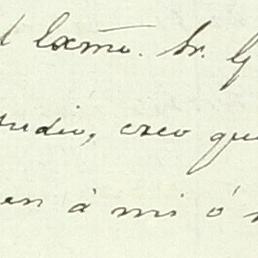 Exmo. Sr. G
studio, creo que
en à mi ó